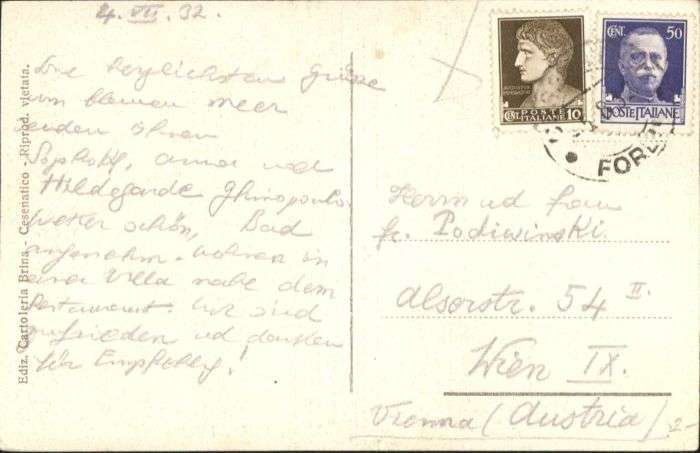 4. VII. 32.
Die herzlichsten Grüße
vom blauen Meer
senden Ihnen
Anna und
Hildegarde
Wetter schön, Bad
angenehm. Wohnen in
einer Villa nahe dem
Restaurant. Wir sind
zufrieden und danken
für Empfehlg!
Ediz. Cartoleria Brina - Cesenatico - Riprod. vietata.
AUGUSTVS
IMPERATOR
POSTE
CENT. ITALIANE 10
CENT. 50
POSTE ITALIANE
FORLI
Herrn und Frau
Podiwinski
Alserstr. 54 II.
Wien IX.
Vienna (Austria)
2-